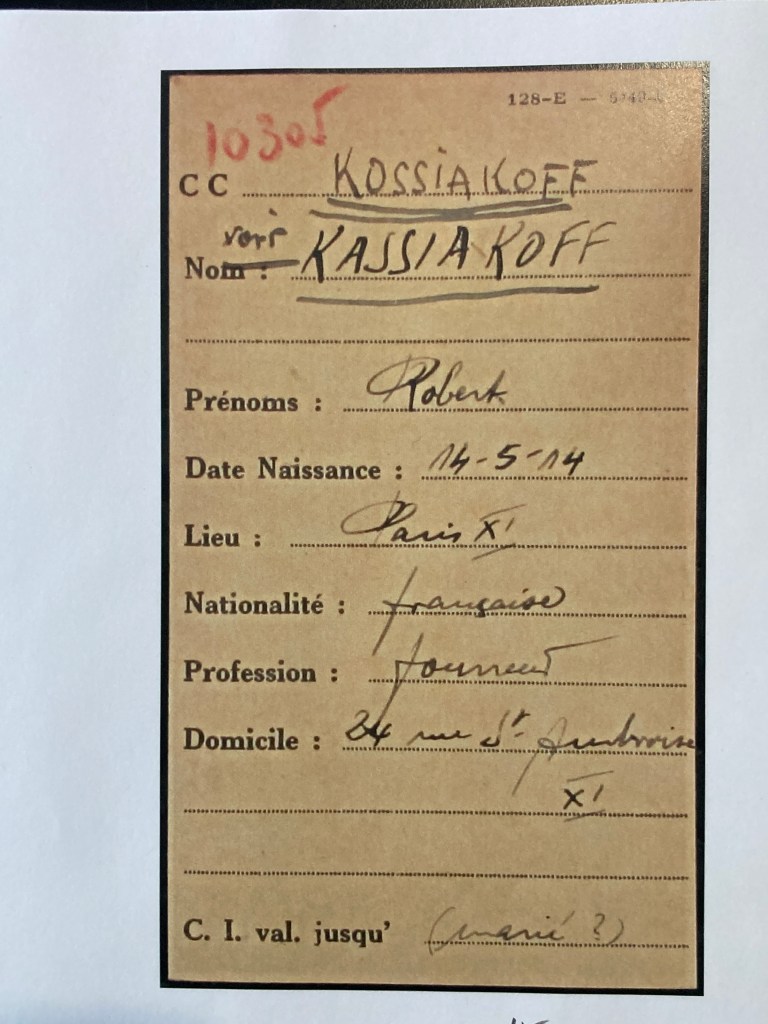 128-E —
10305
CC KOSSIAKOFF
voir
Nom : KASSIAKOFF
Prénoms : Robert
Date Naissance : 14-5-14
Lieu : Paris XI
Nationalité : française
Profession :
Domicile : 24 rue St Ambroise
XI
C. I. val. jusqu' (marié ?)